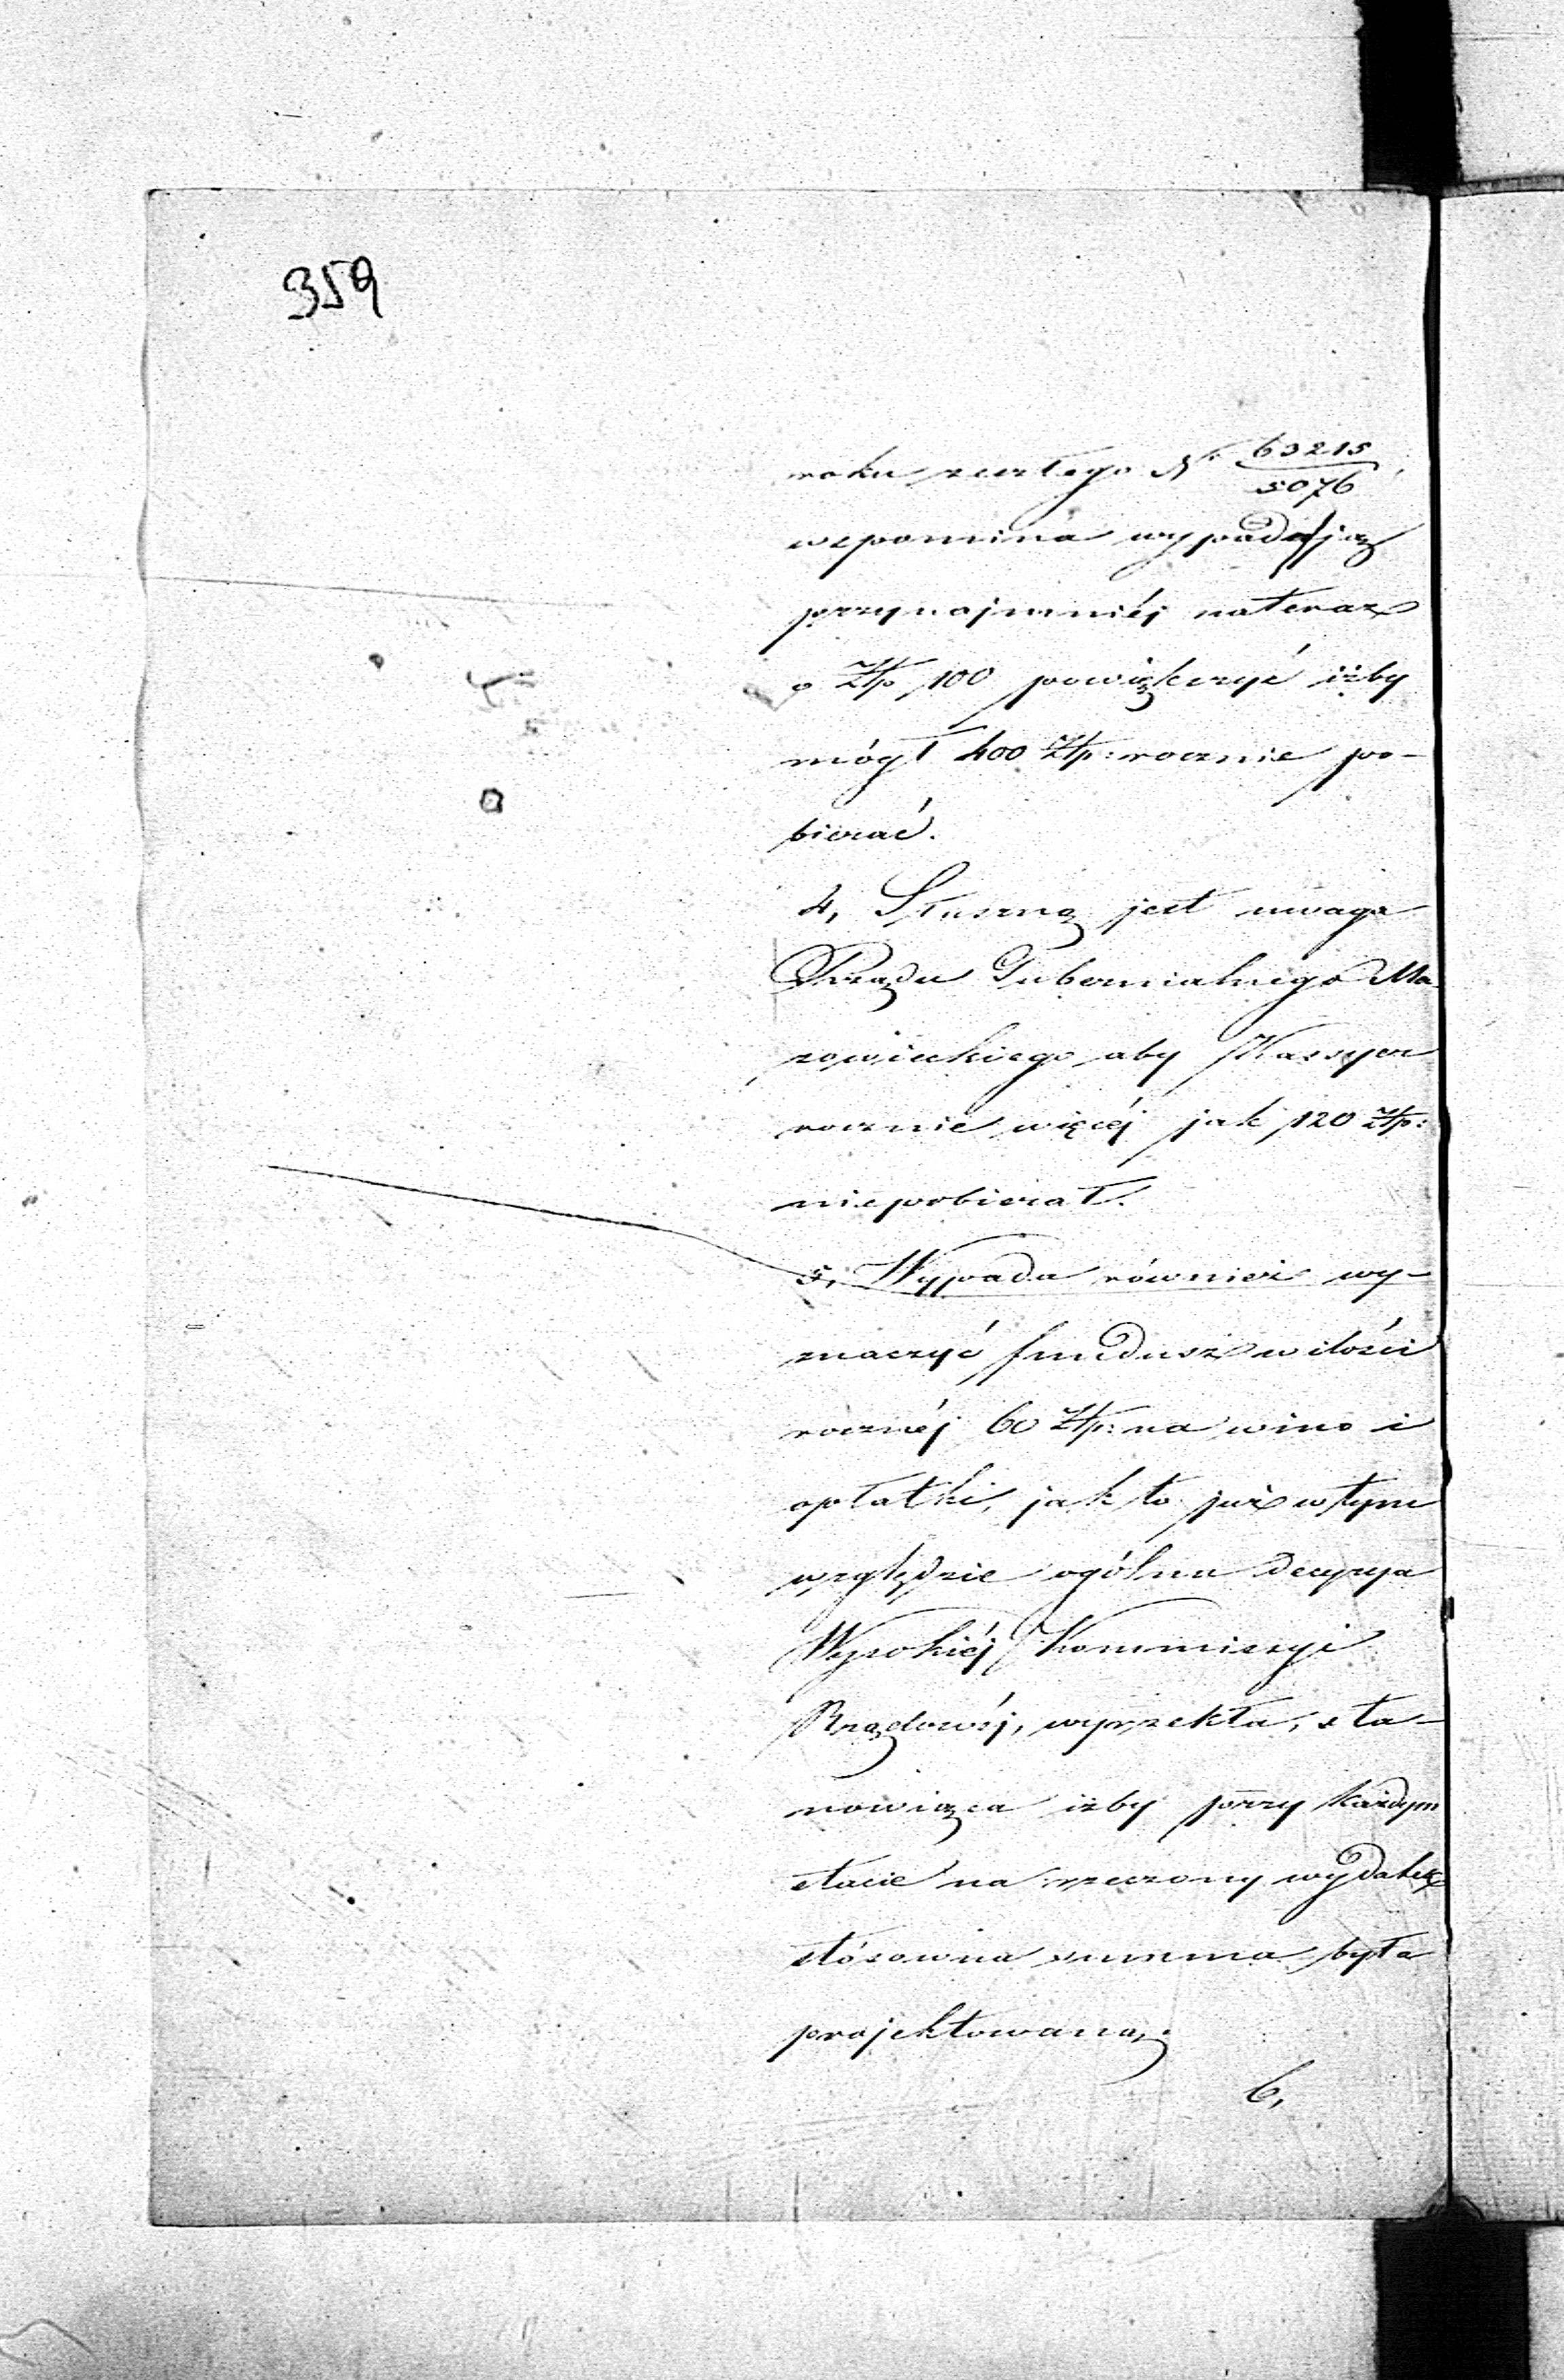 359
roku zeszłego N° 63215/5076
wspomina wypadają
przynajmniéj nateraz
o Złp 100 powiększyć iżby
mógł 400 Złp: rocznie po-
bierać.
4, Słuszną jest uwaga
Rządu Gubernialnego Ma-
zowieckiego aby Kassyer
rocznie więcéj jak 120 Złp:
niepobierał.
5, Wypada również wy-
znaczyć fundusz w ilości
rocznéj 60 Złp: na wino i
opłatki, jak to już w tym
względzie ogólna decyzya
Wysokiéj Kommissyi
Rządowéj, wyrzekła, sta-
nowiąca iżby przy każdym
etacie na rzeczony wydatek
stósowna summa była
projektowaną.
6,